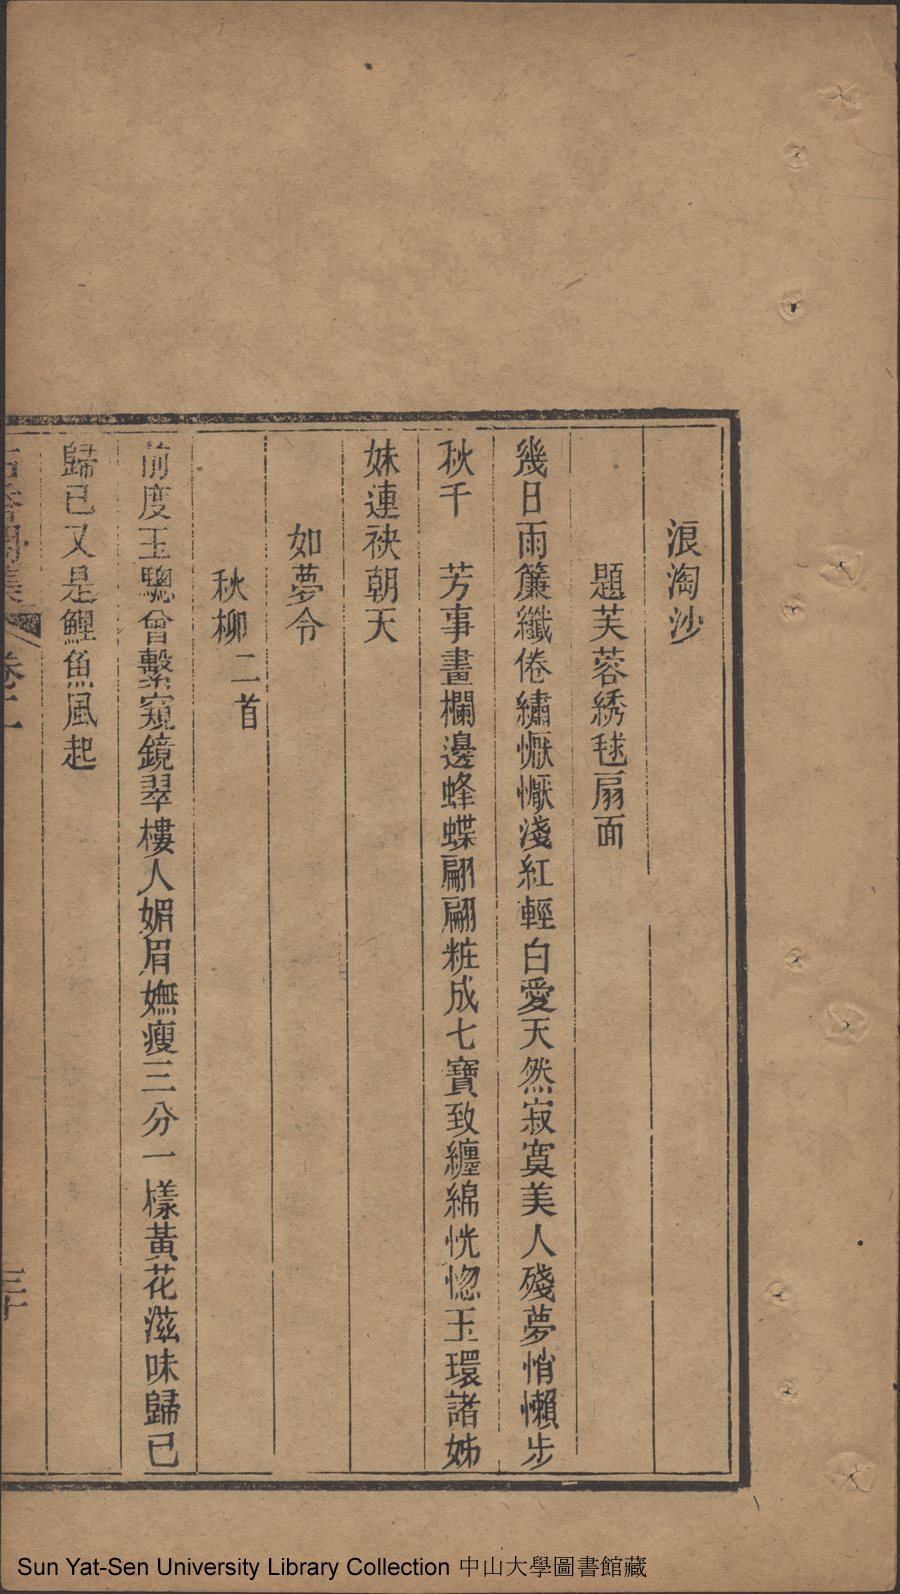 浪淘沙
題芙蓉綉毬扇面
幾日雨簾纖倦繡懨懨淺紅輕白愛天然寂寞美人殘夢悄懶步
秋千　芳事畫欄邊蜂蝶翩翩粧成七寶致纏綿恍惚玉環諸姊
妹連袂朝天
如夢令
秋柳二首
前度玉驄曾繫窺鏡翠樓人媚眉嫵瘦三分一樣黃花滋味歸已
歸已又是鯉魚風起
卷二
三十
Sun Yat-Sen University Library Collection 中山大學圖書館藏